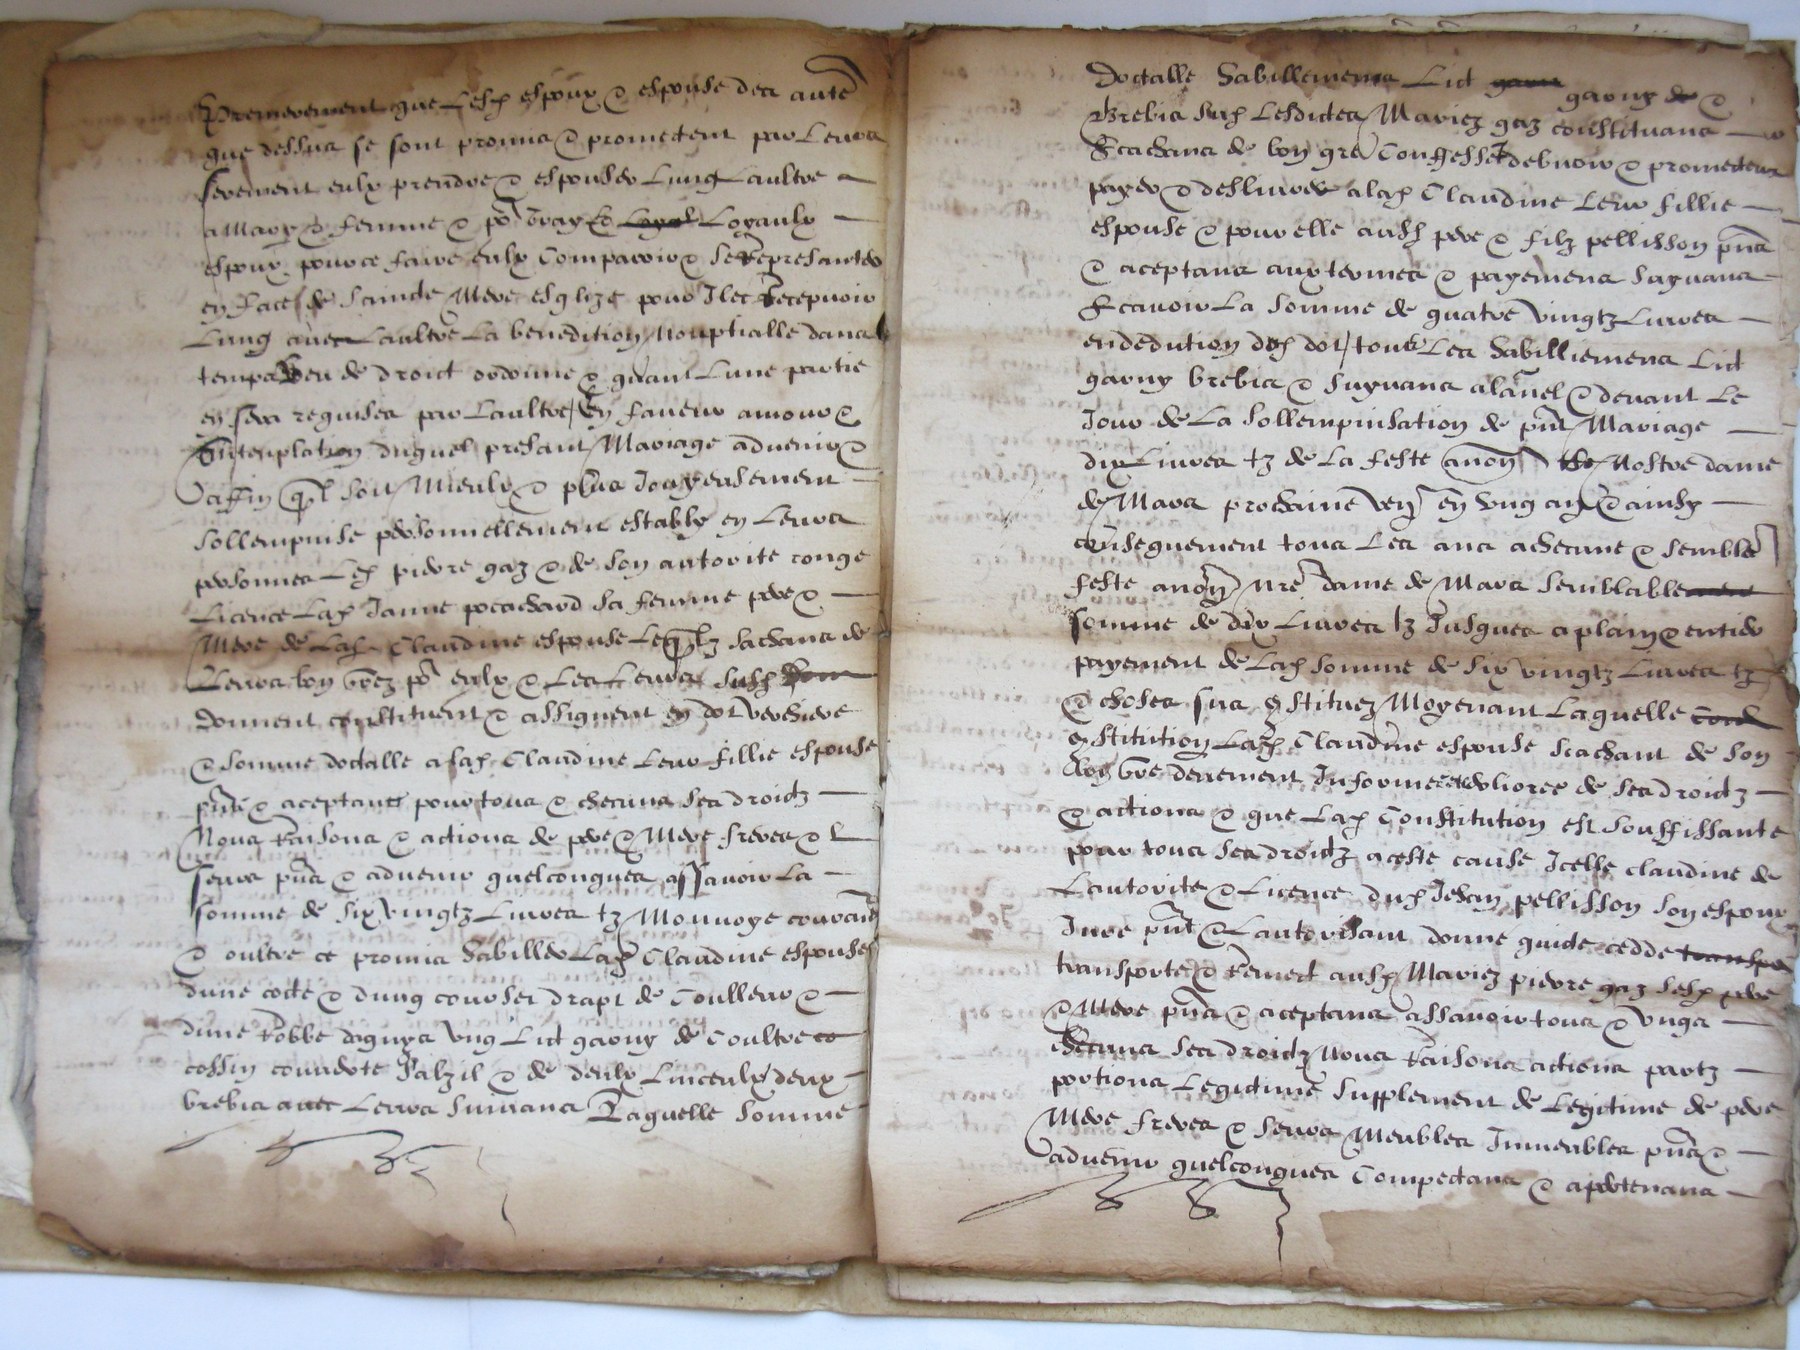 Premierement que Lesd espoux & espouse des aute
que dessus se sont promis & promettent par Leurs
serement eulx prendre & espouser Lung Laultre
a Mary & femme & po vray & Loyaulx
espoux pour ce faire eulx Comparoir & se Representer
en face de Saincte Mere esglize pour Ilec Recepvoir
Lung avec Laultre La benedition Nouptialle dans
temps deu de droict ordonne & quant Lune partie
en sera requise par Laultre / En faveur amour &
Contenplation duquel presant Mariage advenir &
affin quil soit Mieulx & plus Joyeusement
sollempnise personnellement establys en Leurs
personnes Led pierre gaz & de son autorite conge
Licence Lad Janne pocachard sa femme pere &
Mere de Lad Claudine espouse Lesquelz sachans de
Leurs bon grez po eulx & Les Leurs susd
donnent constituent & assignent en dot verchiere
& somme doctalle a lad Claudine Leur fillie espouse
pnte & aceptante pour tous & checuns ses droictz
Noms Raisons & actions de pere & Mere freres &
seurs pns & advenir quelconques assavoir La
somme de six vingtz Livres tz Monnoye courant
& oultre ce promis habiller Lad Claudine espouse
dune cotte & dung courset drapt de Coulleur &
dune Robbe Ung Lict garny de Coultre
cossin couverte & de deulx Linceulx deux
brebis avec Leurs suivans Laquelle somme
doctalle habillemens Lict garny &
Brebis susd Lesdictes Mariez gaz constituans
Scachans de bon gre Confessent debvoir & promettent
payer & desliurer a lad Claudine Leur fillie
espouse & pour elle ausd pere & filz pellisson pns
& aceptans aux termes & payemens suyvans
Scavoir La somme de quatre vingtz Livres
en dedution dud dot / tous Les habilliemens Lict
garny brebis & suyvans a lavel & devant Le
Jour de La sollempnisation de pnt Mariage
dix Livres tz de La feste anon Nostre dame
de Mars prochaine ven en ung an & ainsy
consequement tous Les ans a checune & semble
feste anon nre dame de Mars semblable
somme de dix Livres tz Jusques a plain & entier
payement de Lad somme de six vingtz Livres tz
& choses sus constituez Moyenant Laquelle
constitution Lad Claudine espouse scachant de son
bon gre deuement Informee de ses droictz
& actions & que Lad Constitution est souffissante
pour tous ses droictz a ceste cause Icelle claudine de
Lautorite & Licence dud Jehan pellisson son espoux
Jure pnt & Lautorisant donne quicte cedde
transporte & Remect ausd Mariez pierre gaz sesd pere
& Mere pns & aceptans assavoir tous & Ungs
checuns ses droictz Noms Raisons actions partz
portions Legitime supplement de Legitime de pere
Mere freres & seurs Meubles Inmeubles pns &
advenir quelconques Compectans & apertenans